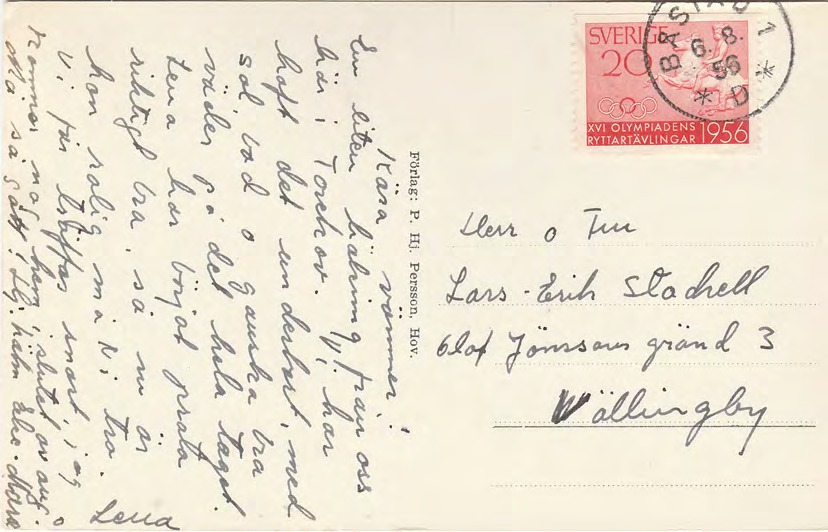 Kära vänner!
En liten hälsning från oss
här i Torekov. Vi har
haft det underbart, med
sol bad o ganska bra
väder på det hela taget.
Lena har börjat prata
riktigt bra, så nu är
hon rolig må Ni tro.
Vi får träffas snart, jag
kommer nog hem i slutet av aug.
Må så gott! Hj. häls.
Lena
Förlag: P. Hj. Persson, Hov.
SVERIGE
20
XVI OLYMPIADENS
RYTTARTÄVLINGAR 1956
BÅSTAD 1
6. 8.
56
* D *
Herr o Fru
Lars-Erik
Olof Jönssons gränd 3
Vällingby